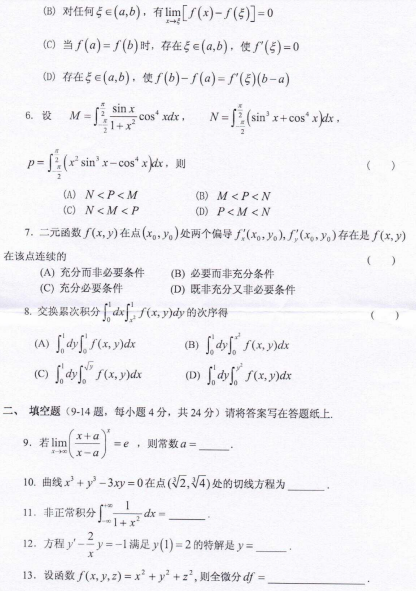 (B) 对任何 ξ∈(a,b)，有 lim_{x→ξ}[f(x)-f(ξ)]=0
(C) 当 f(a)=f(b) 时，存在 ξ∈(a,b)，使 f'(ξ)=0
(D) 存在 ξ∈(a,b)，使 f(b)-f(a)=f'(ξ)(b-a)
6. 设 M=∫_{-π/2}^{π/2} sin x/(1+x²) cos⁴ xdx， N=∫_{-π/2}^{π/2}(sin³ x+cos⁴ x)dx，
p=∫_{-π/2}^{π/2}(x² sin³ x-cos⁴ x)dx，则 （ ）
(A) N<P<M (B) M<P<N
(C) N<M<P (D) P<M<N
7. 二元函数 f(x,y) 在点 (x₀,y₀) 处两个偏导 f'ₓ(x₀,y₀), f'ᵧ(x₀,y₀) 存在是 f(x,y)
在该点连续的 （ ）
(A) 充分而非必要条件 (B) 必要而非充分条件
(C) 充分必要条件 (D) 既非充分又非必要条件
8. 交换累次积分 ∫₀¹dx∫_{x²}^{1} f(x,y)dy 的次序得 （ ）
(A) ∫₀¹dy∫₀¹ f(x,y)dx (B) ∫₀¹dy∫₀^{x²} f(x,y)dx
(C) ∫₀¹dy∫₀^{√y} f(x,y)dx (D) ∫₀¹dy∫₀^{y²} f(x,y)dx
二、 填空题（9-14 题，每小题 4 分，共 24 分）请将答案写在答题纸上.
9. 若 lim_{x→∞}((x+a)/(x-a))ˣ=e ，则常数 a=_____.
10. 曲线 x³+y³-3xy=0 在点 (∛2,∛4) 处的切线方程为_____.
11. 非正常积分 ∫_{-∞}^{+∞} 1/(1+x²) dx=_____.
12. 方程 y'-(2/x)y=-1 满足 y(1)=2 的特解是 y=_____.
13. 设函数 f(x,y,z)=x²+y²+z²，则全微分 df=_____.